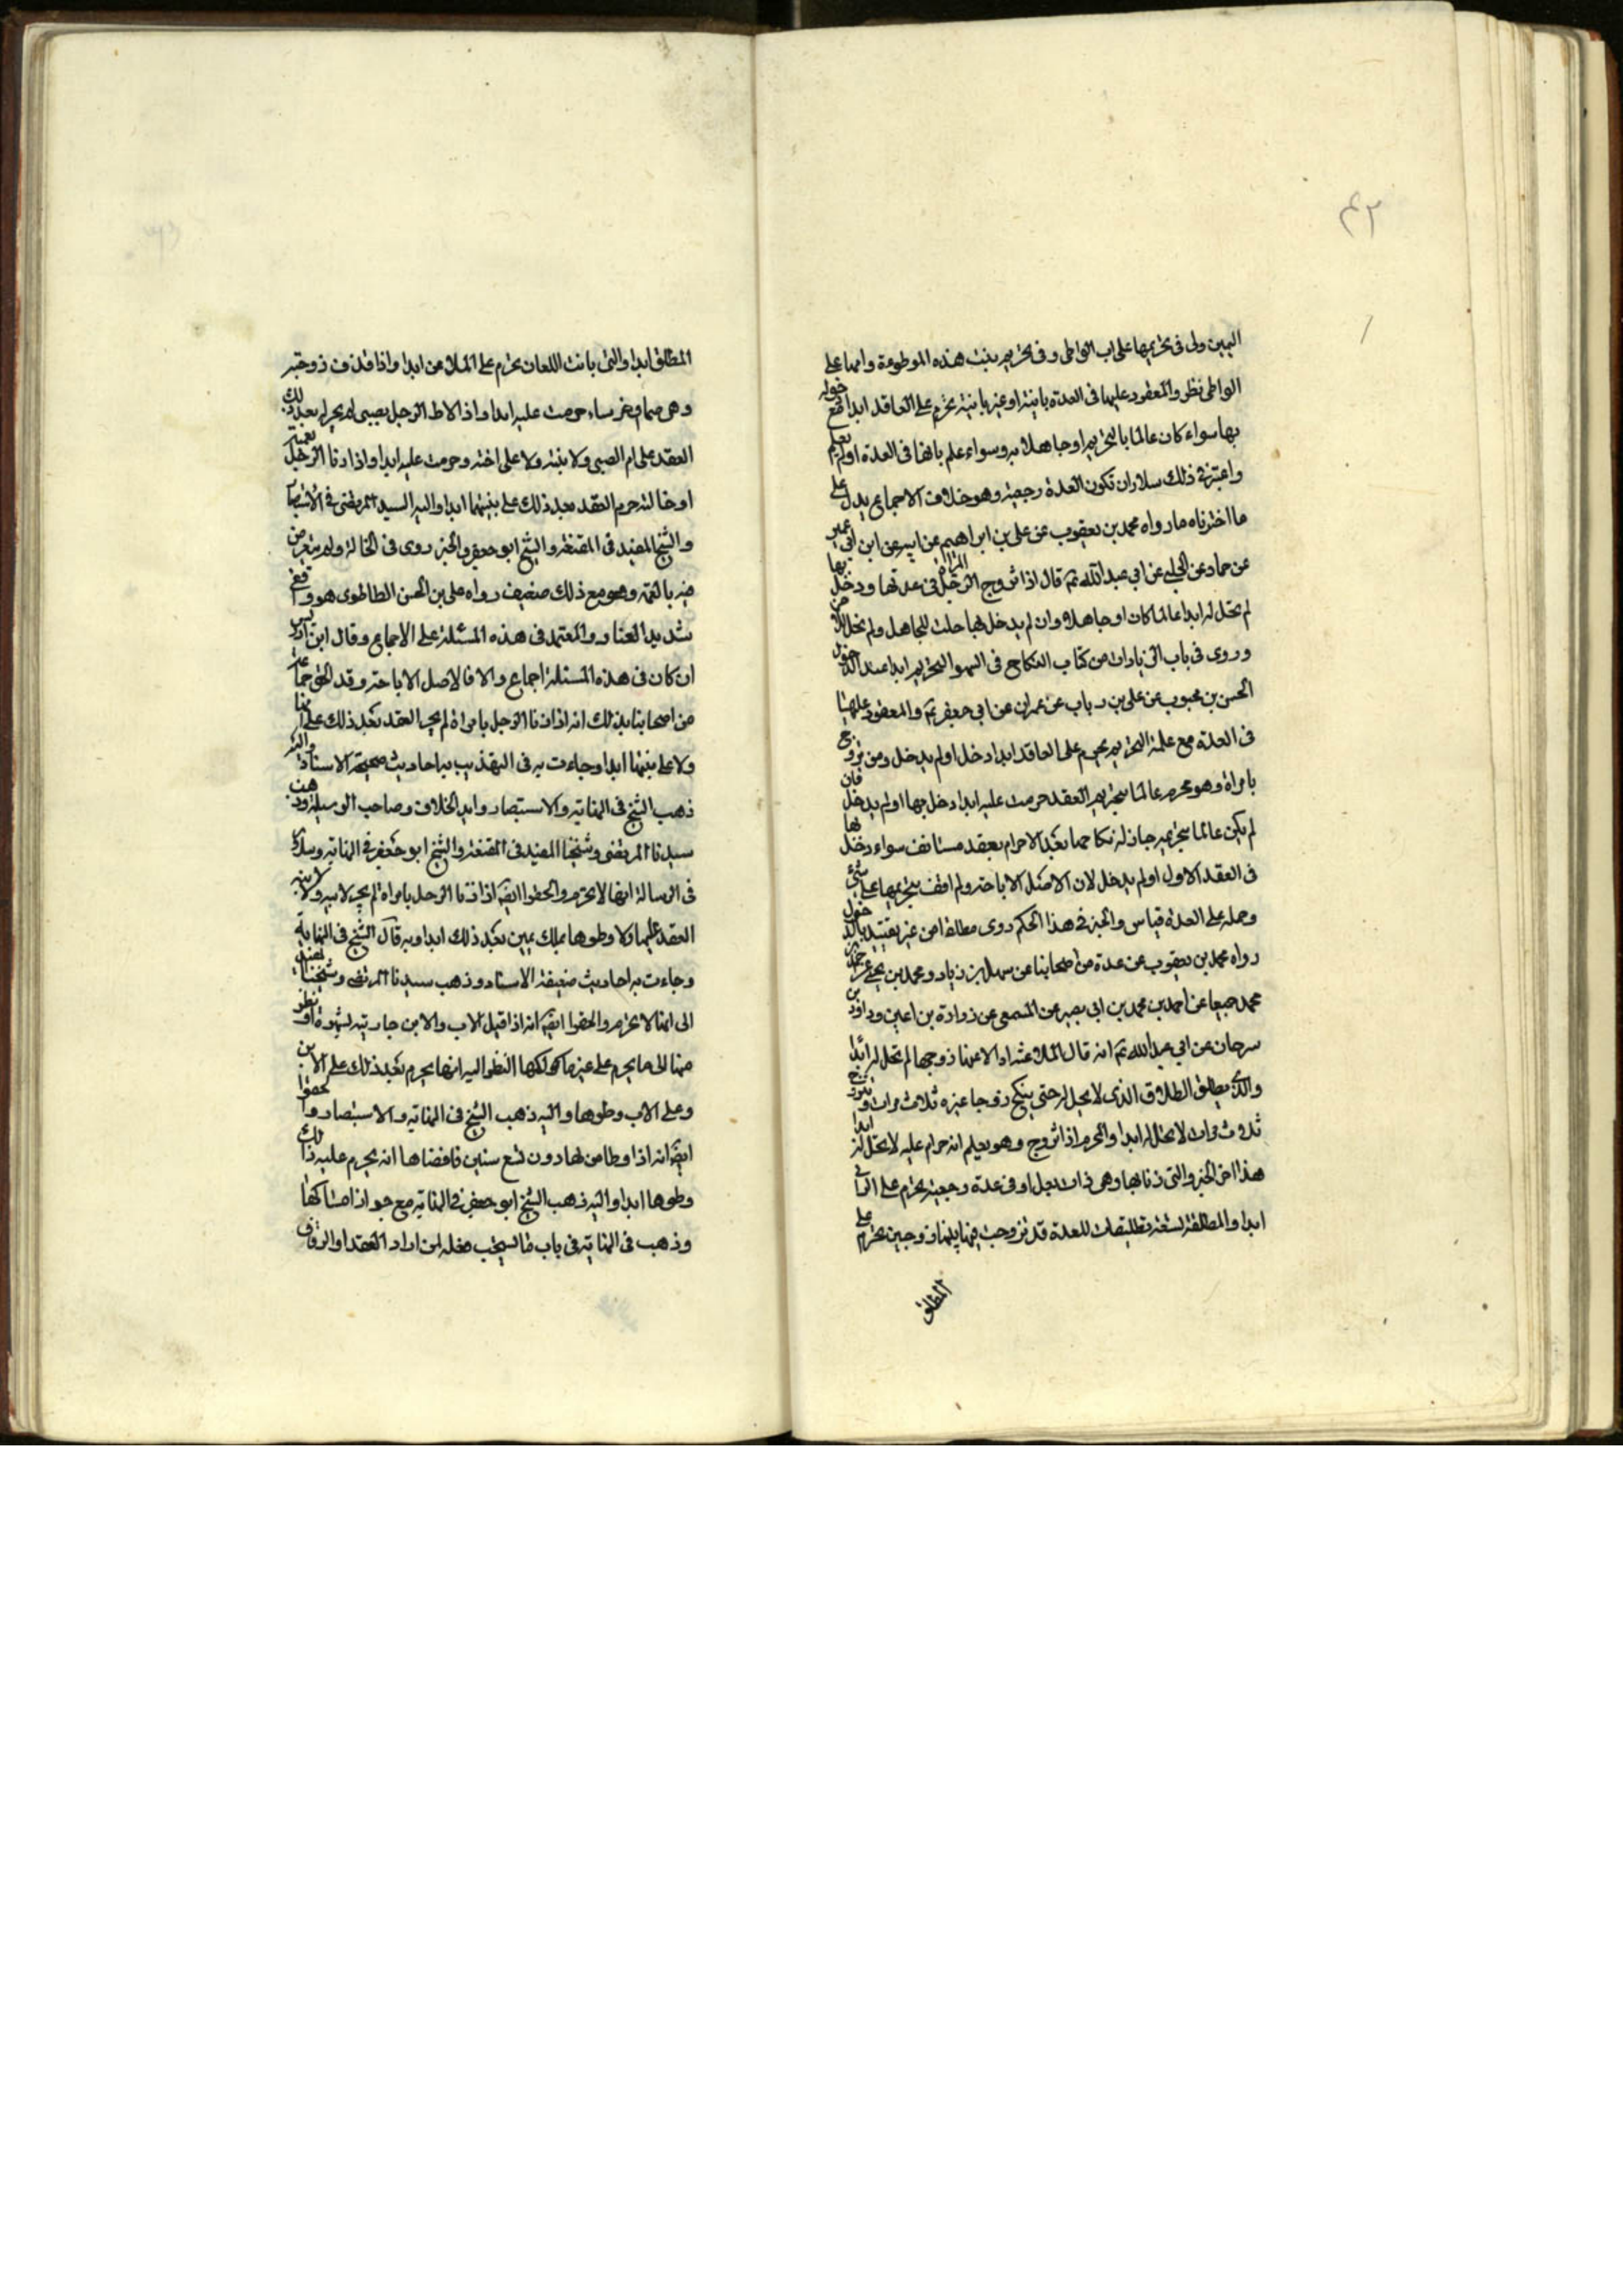 ٤٢
البين ولى فى تحريمها على اب الواطى وفى تحريم بنت هذه الموطوءة وامها على
الواطى نظر والمعقود عليها فى العدة باينة او غير باينة تحرم على العاقد ابدا مع دخوله
بها سواء كان عالما بالتحريم او جاهلا به وسواء علم بانها فى العدة او لم يعلم
واعتبر فى ذلك سلار ان تكون العدة رجعية وهو خلاف الاجماع يدل على
ما اخترناه ما رواه محمد بن يعقوب عن على بن ابراهيم عن ابيه عن ابن ابى عمير
عن حماد عن الحلبى عن ابى عبد الله ع قال اذا تزوج الرجل المراة فى عدتها ودخل بها
لم تحل له ابدا عالما كان او جاهلا وان لم يدخل بها حلت للجاهل ولم تحل للاخر
وروى فى باب الزيادات من كتاب النكاح فى السهو التحريم ابدا عند الدخول
الحسن بن محبوب عن على بن رباب عن حمران عن ابى جعفر ع والمعقود عليها
فى العدة مع علمه التحريم يحرم على العاقد ابدا دخل او لم يدخل ومن تزوج
بامراة وهو محرم عالما بتحريم العقد حرمت عليه ابدا دخل بها او لم يدخل فان
لم يكن عالما بتحريمه جاز له نكاحها بعد الاحرام بعقد مستانف سواء دخل بها
فى العقد الاول او لم يدخل لان الاصل الاباحة ولم اقف بتحريمها على شئ
وحمله على العدة قياس والخبر فى هذا الحكم روى مطلقا من غير تقييد بالدخول
رواه محمد بن يعقوب عن عدة من اصحابنا عن سهل بن زياد ومحمد بن يحيى عن احمد بن
محمد جميعا عن احمد بن محمد بن ابى بصير عن المثنى عن زرارة بن اعين وداود بن
سرحان عن ابى عبد الله ع انه قال الملاعنة اذا لاعنها زوجها لم تحل له ابدا
والذى يطلق الطلاق الذى لا يحل له حتى ينكح زوجا غيره ثلاث مرات وتزوج
ثلاث مرات لا تحل له ابدا والمحرم اذا تزوج وهو يعلم انه حرام عليه لا تحل له ابدا
هذا اخر الخبر والتى زنا بها وهى ذات بعل او فى عدة رجعية تحرم على الزانى
ابدا والمطلقة لتسعة تطليقات للعدة قد تزوجت فيما بينها زوجين تحرم على
المطلق
المطلق ابدا والتى بانت اللعان تحرم على الملاعن ابدا واذا قذف زوجته
وهى صماء خرساء حرمت عليه ابدا واذا لاط الرجل بصبى لم يحل له بعد ذلك
العقد على ام الصبى ولا بنته ولا على اخته وحرمت عليه ابدا واذا زنا الرجل بعمته
او خالته حرم العقد بعد ذلك على بنتهما ابدا واليه السيد المرتضى فى الانتصار
والشيخ المفيد فى المقنعة والشيخ ابو جعفر والخبر روى فى الخالة ولم يتعرض
فيه بالعمة وهو مع ذلك ضعيف رواه على بن الحسن الطاطرى وهو واقفى
شديد العناد والمعتمد فى هذه المسئلة على الاجماع وقال ابن ادريس
ان كان فى هذه المسئلة اجماع والا فالاصل الاباحة وقد الحق جماعة
من اصحابنا بذلك انه اذا زنا الرجل بامراة لم يحل العقد بعد ذلك على امها
ولا على بنتها ابدا وجاءت به فى التهذيب به احاديث صحيحة الاسناد واليه
ذهب الشيخ فى النهاية والاستبصار وابى الخلاف وصاحب الوسيلة وذهب
سيدنا المرتضى وشيخنا المفيد فى المقنعة والشيخ ابو جعفر فى النهاية وسلار
فى الرسالة انها لا تحرم والحقوا ايضا اذا زنا الرجل بامراة لم يحل لابيه ولا لابنه
العقد عليها ولا وطوها بملك يمين بعد ذلك ابدا وبه قال الشيخ فى النهاية
وجاءت به احاديث ضعيفة الاسناد وذهب سيدنا المرتضى وشيخنا المفيد
الى انها لا تحرم والحقوا ايضا انه اذا قبل الاب والابن جاريته بشهوة او نظر
منها الى ما يحرم على غير مالكها النظر اليه انها يحرم بعد ذلك على الابن
وعلى الاب وطوها واليه ذهب الشيخ فى النهاية والاستبصار والحقوا
ايضا انه اذا وطا من لها دون تسع سنين فافضاها انه يحرم عليه ذلك
وطوها ابدا واليه ذهب الشيخ ابو جعفر فى النهاية مع جواز امساكها
وذهب فى النهاية فى باب ما يستحب فعله لمن اراد العقد او الزفاف